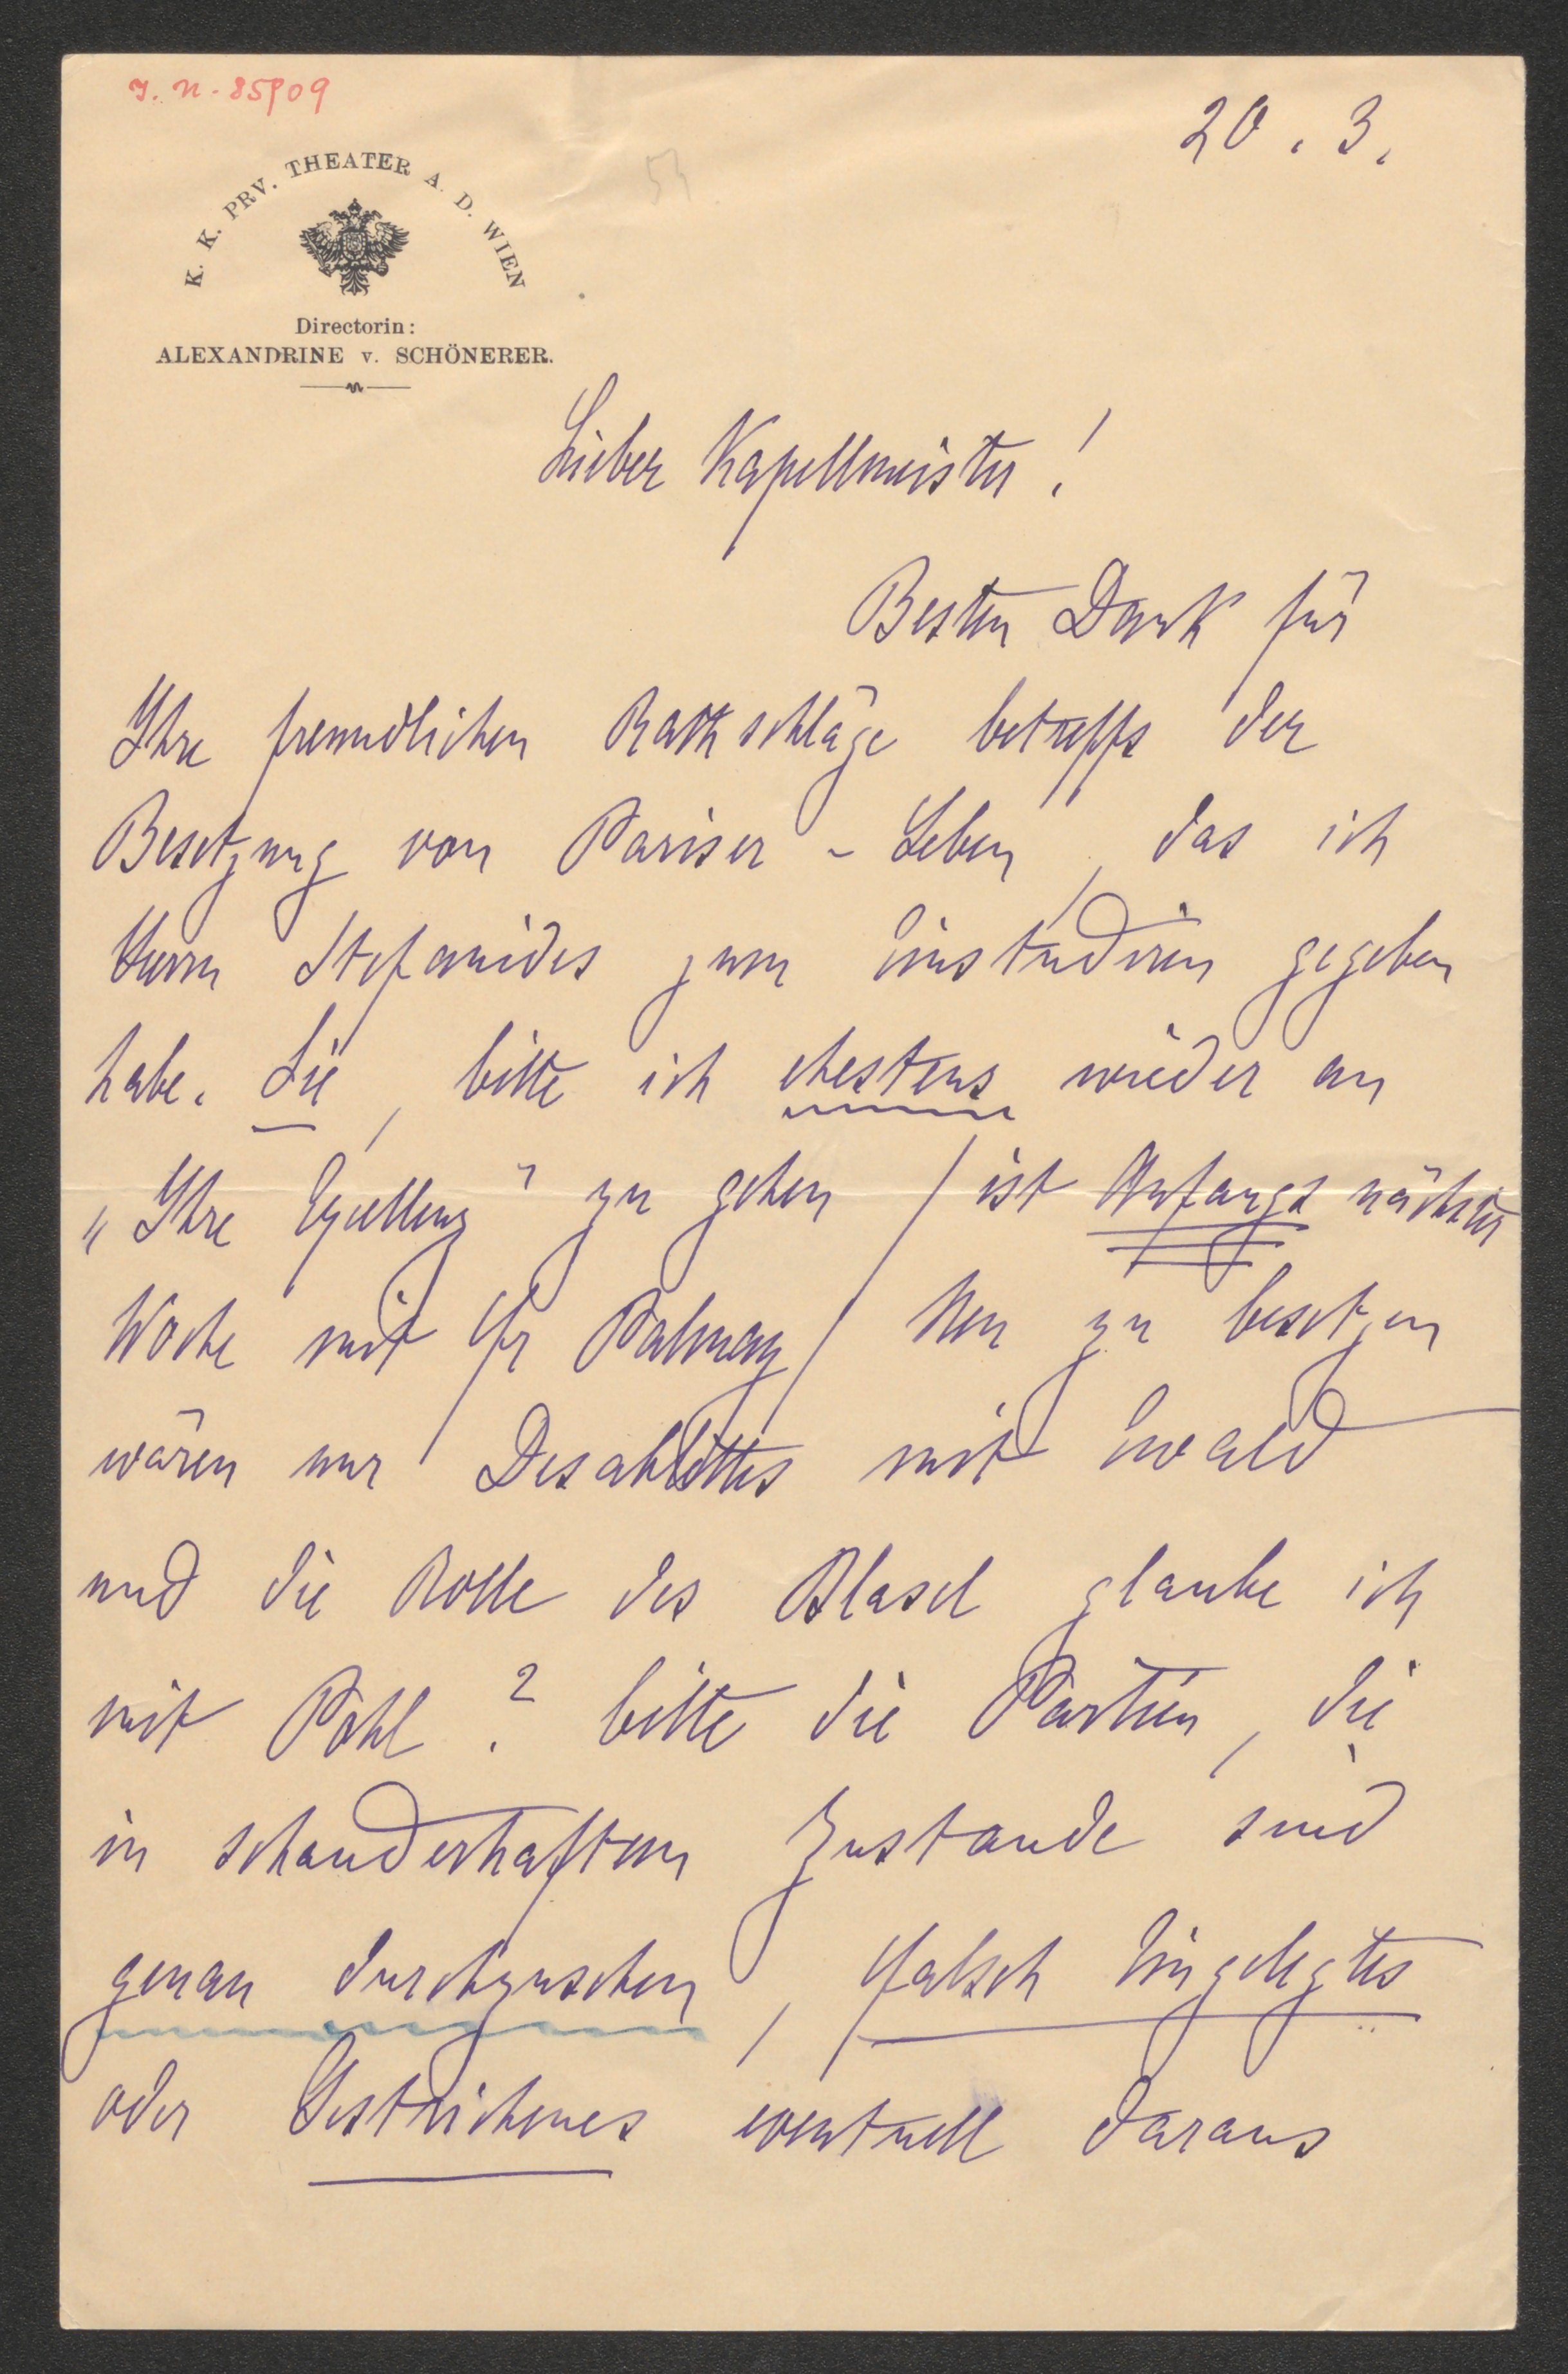 J. N. 85909
20. 3.
54
K. K. PRV. THEATER A. D. WIEN
Directorin:
ALEXANDRINE v. SCHÖNERER.
Lieber Kapellmeister!
Besten Dank für
Ihre freundlichen Rathschläge betreffs der
Besetzung von Pariser-Leben, das ich
Herrn Stefanides zum Einstudiren gegeben
habe. Sie, bitte ich ehestens wieder an
„Ihre Excellenz" zu gehen / ist Anfangs nächster
Woche mit Fr Palmay / Neu zu besetzen
wären nur mit Ewald
und die Rolle des Blasel glaube ich
mit Pohl? bitte die Partien, die
in schauderhaftem Zustande sind
genau durchzusehen, falsch Eingelegtes
oder Gestrichenes eventuell daraus